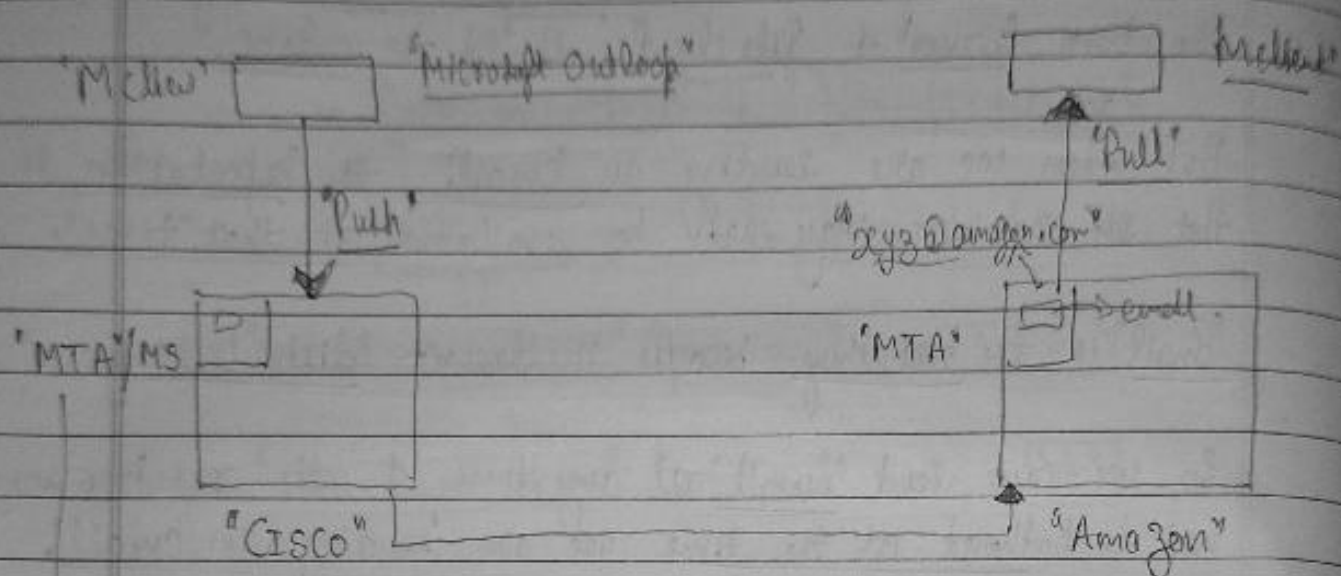 "MClien" "Microsoft Outlook" Mclient"
"Pull"
"Push"
"xyz@amazon.com"
"MTA"/MS "MTA" email.
"CISCO" "Amazon"